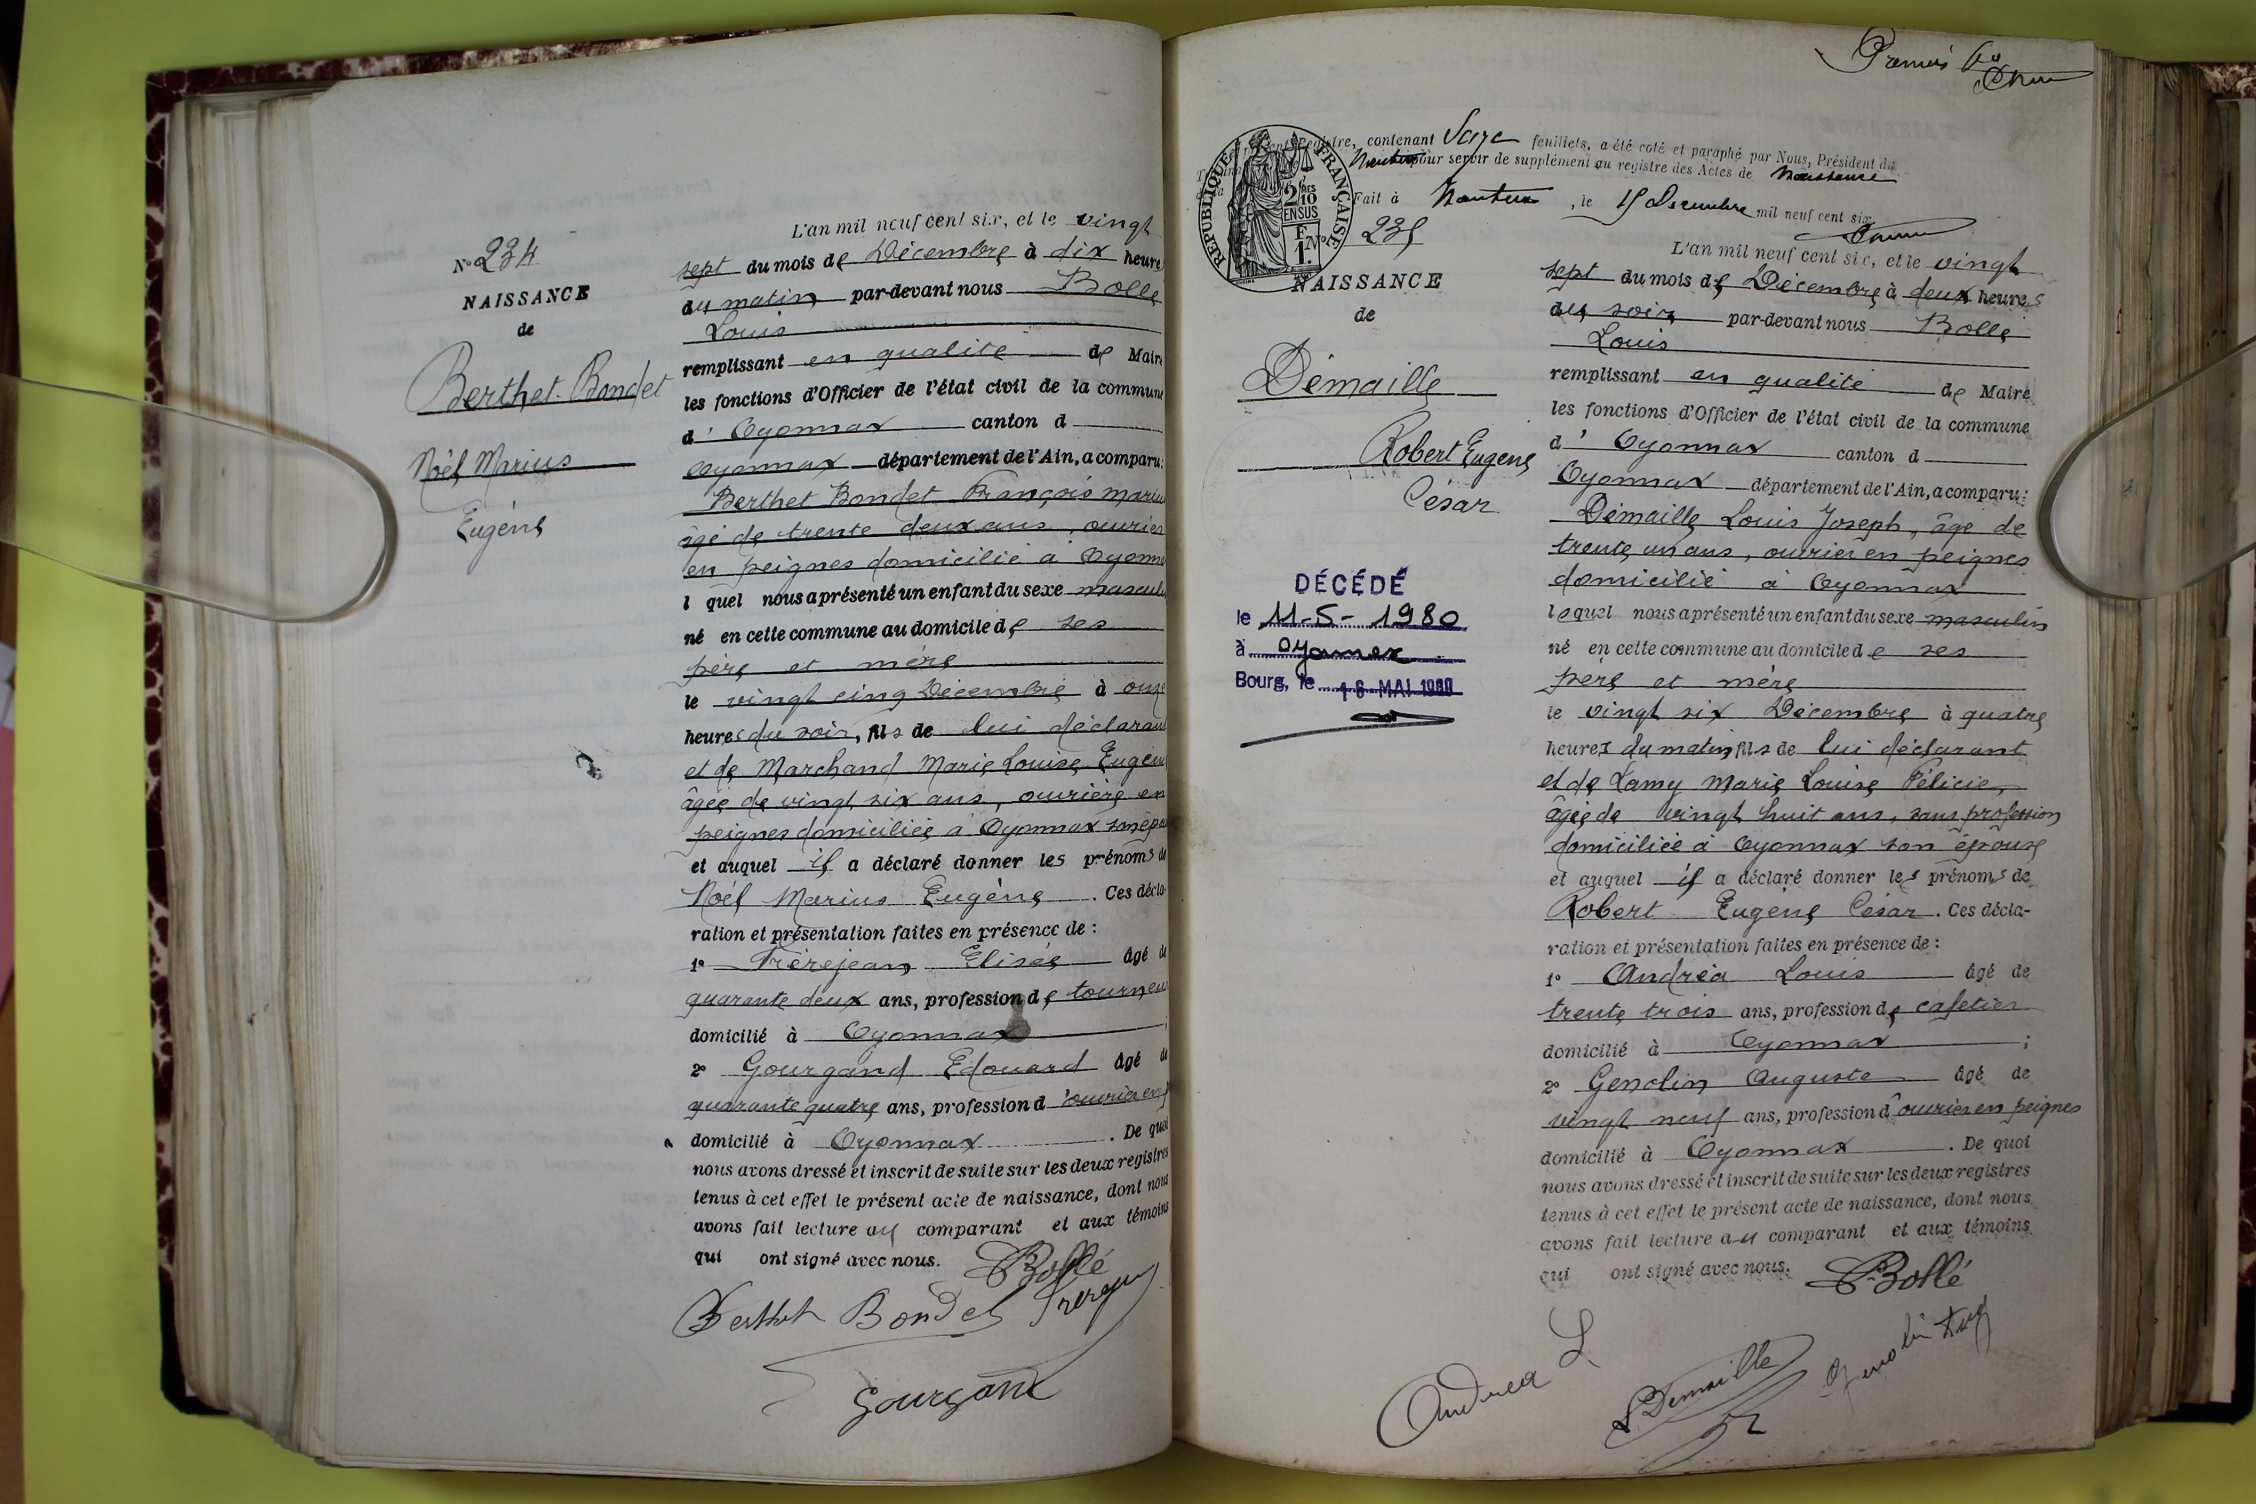 L'an mil neuf cent six, et le vingt
N° 234
sept du mois de Décembre à dix heures
NAISSANCE
du matin par-devant nous Bollé
de
Louis
Berthet-Bondet
remplissant en qualité de Maire
les fonctions d'Officier de l'état civil de la commune
d'Oyonnax canton d
Noël Marius
Oyonnax département de l'Ain, a comparu:
Berthet Bondet François Marius
Eugène
âgé de trente deux ans, ouvrier
en peignes domicilié à Oyonnax
l quel nous a présenté un enfant du sexe masculin
né en cette commune au domicile de ses
père et mère
le vingt cinq Décembre à onze
heures du soir, fils de lui déclarant
et de Marchand Marie Louise Eugénie
âgée de vingt six ans, ouvrière en
peignes domiciliée à Oyonnax son épouse
et auquel il a déclaré donner les prénoms de
Noël Marius Eugène. Ces décla-
ration et présentation faites en présence de:
1° Frèrejean Elisée âgé de
quarante deux ans, profession de tourneur
domicilié à Oyonnax;
2° Gourgand Edouard âgé de
quarante quatre ans, profession d'ouvrier en p
domicilié à Oyonnax. De quoi
nous avons dressé et inscrit de suite sur les deux registres
tenus à cet effet le présent acte de naissance, dont nous
avons fait lecture au comparant et aux témoins
qui ont signé avec nous. Bollé
Berthet Bondet Frerejean
Gourgand
Premier
Registre, contenant feuillets, a été coté et paraphé par Nous, Président du
Nantua pour servir de supplément au registre des Actes de Naissance
Fait à Nantua, le 15 Décembre mil neuf cent six
RÉPUBLIQUE FRANÇAISE
2/10 EN SUS
F. 1.
N° 235
L'an mil neuf cent six, et le vingt
NAISSANCE
sept du mois de Décembre à deux heures
de
du soir par-devant nous Bollé
Louis
Démaille
remplissant en qualité de Maire
les fonctions d'Officier de l'état civil de la commune
Robert Eugène
d'Oyonnax canton d
César
Oyonnax département de l'Ain, a comparu:
Démaille Louis Joseph, âgé de
trente un ans, ouvrier en peignes
domicilié à Oyonnax
lequel nous a présenté un enfant du sexe masculin
né en cette commune au domicile de ses
père et mère
DÉCÉDÉ
le 11-5-1980
à Oyonnax
Bourg, le 16 MAI 1980
le vingt six Décembre à quatre
heures du matin, fils de lui déclarant
et de Lamy Marie Louise Félicie,
âgée de vingt huit ans, sans profession
domiciliée à Oyonnax son épouse
et auquel il a déclaré donner les prénoms de
Robert Eugène César. Ces décla-
ration et présentation faites en présence de:
1° Andréa Louis âgé de
trente trois ans, profession de cafetier
domicilié à Oyonnax;
2° Genolin Auguste âgé de
vingt neuf ans, profession d'ouvrier en peignes
domicilié à Oyonnax. De quoi
nous avons dressé et inscrit de suite sur les deux registres
tenus à cet effet le présent acte de naissance, dont nous
avons fait lecture au comparant et aux témoins
qui ont signé avec nous. Bollé
Andrea L
L Demaille
Genolin Aug